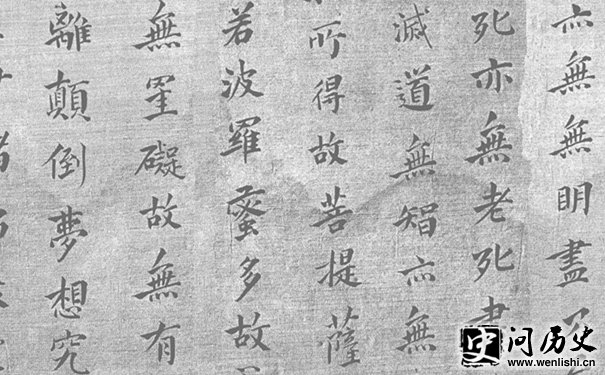 亦無無明盡
死亦無老死盡
滅道無智亦無
所得故菩提薩
若波羅蜜多故
無罣礙故無有
離顛倒夢想究
史
问历史
www.wenlishi.cn